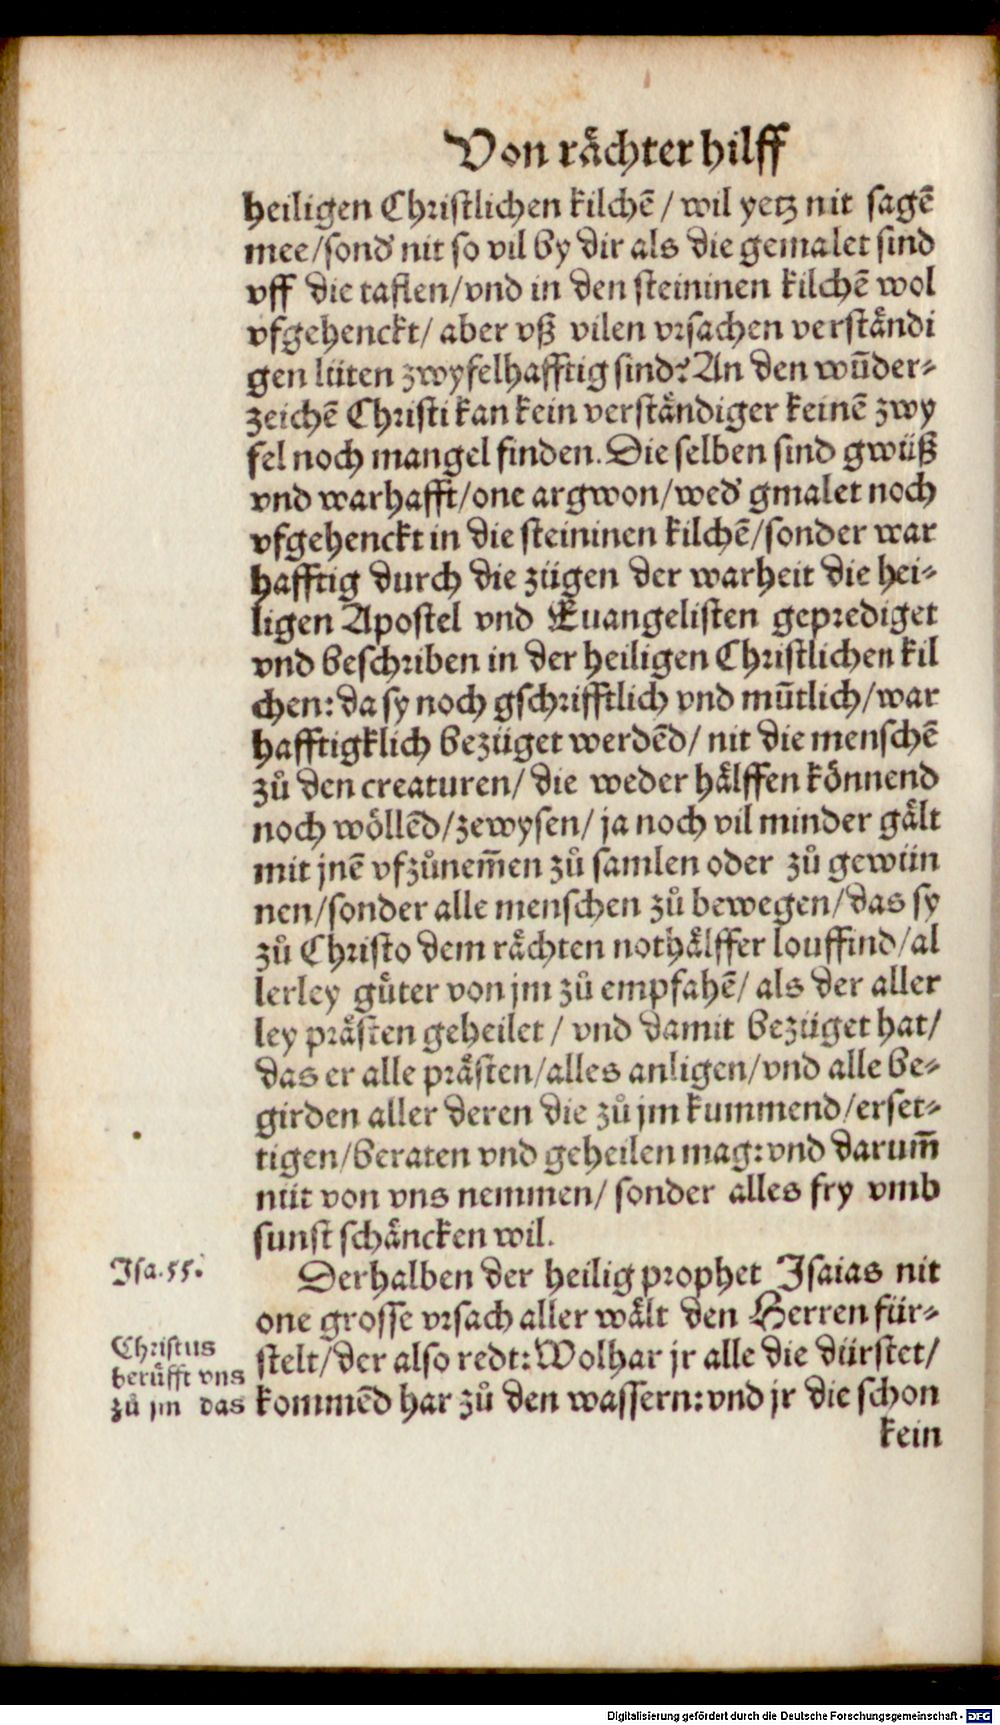 Von rächter hilff
heiligen Christlichen kilchẽ / wil yetz nit sagẽ
mee/sond' nit so vil by dir als die gemalet sind
vff die taflen/vnd in den steininen kilchẽ wol
vfgehenckt/ aber vß vilen vrsachen verständi
gen lüten zwyfelhafftig sind? An den wũder⸗
zeichẽ Christi kan kein verständiger keinẽ zwy
fel noch mangel finden. Die selben sind gwüß
vnd warhafft/one argwon/wed' gmalet noch
vfgehenckt in die steininen kilchẽ/sonder war
hafftig durch die zügen der warheit die hei⸗
ligen Apostel vnd Euangelisten geprediget
vnd beschriben in der heiligen Christlichen kil
chen: da sy noch gschrifftlich vnd mũtlich/war
hafftigklich bezüget werdẽd/ nit die menschẽ
zů den creaturen/ die weder hälffen könnend
noch wöllẽd/zewysen/ ja noch vil minder gält
mit jnẽ vfzůnem̃en zů samlen oder zů gewün
nen/sonder alle menschen zů bewegen/das sy
zů Christo dem rächten nothälffer louffind/al
lerley gůter von jm zů empfahẽ/ als der aller
ley prästen geheilet / vnd damit bezüget hat/
das er alle prästen/alles anligen/vnd alle be⸗
girden aller deren die zů jm kummend/erset⸗
tigen/beraten vnd geheilen mag: vnd darum̃
nüt von vns nemmen/ sonder alles fry vmb
sunst schäncken wil.
Isa. 55.
Derhalben der heilig prophet Isaias nit
one grosse vrsach aller wält den Herren für⸗
stelt/der also redt: Wolhar jr alle die dürstet/
kommẽd har zů den wassern: vnd jr die schon
Christus
berüfft vns
zů jm das
kein
Digitalisierung gefördert durch die Deutsche Forschungsgemeinschaft - DFG